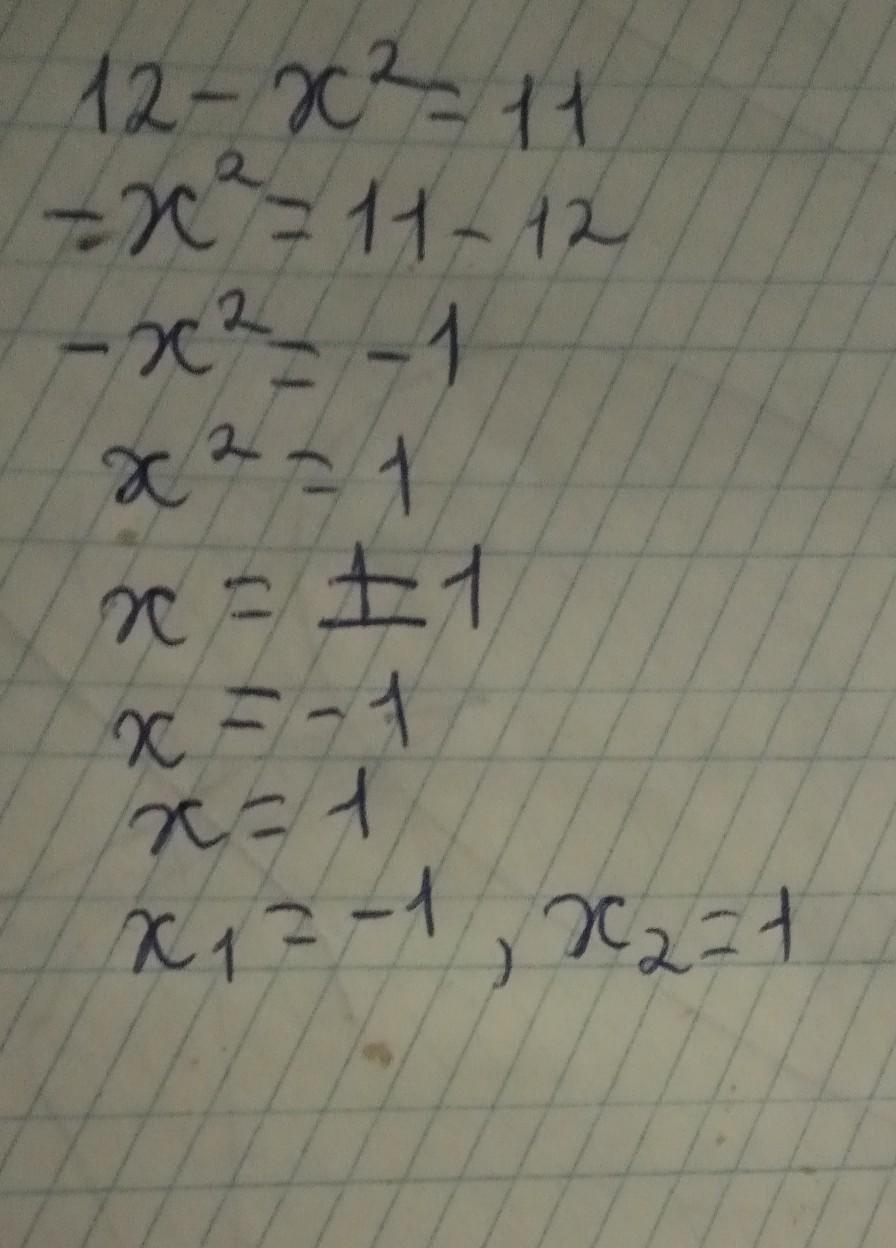 12 - x² = 11
- x² = 11 - 12
- x² = - 1
x² = 1
x = ± 1
x = - 1
x = 1
x₁ = - 1 , x₂ = 1